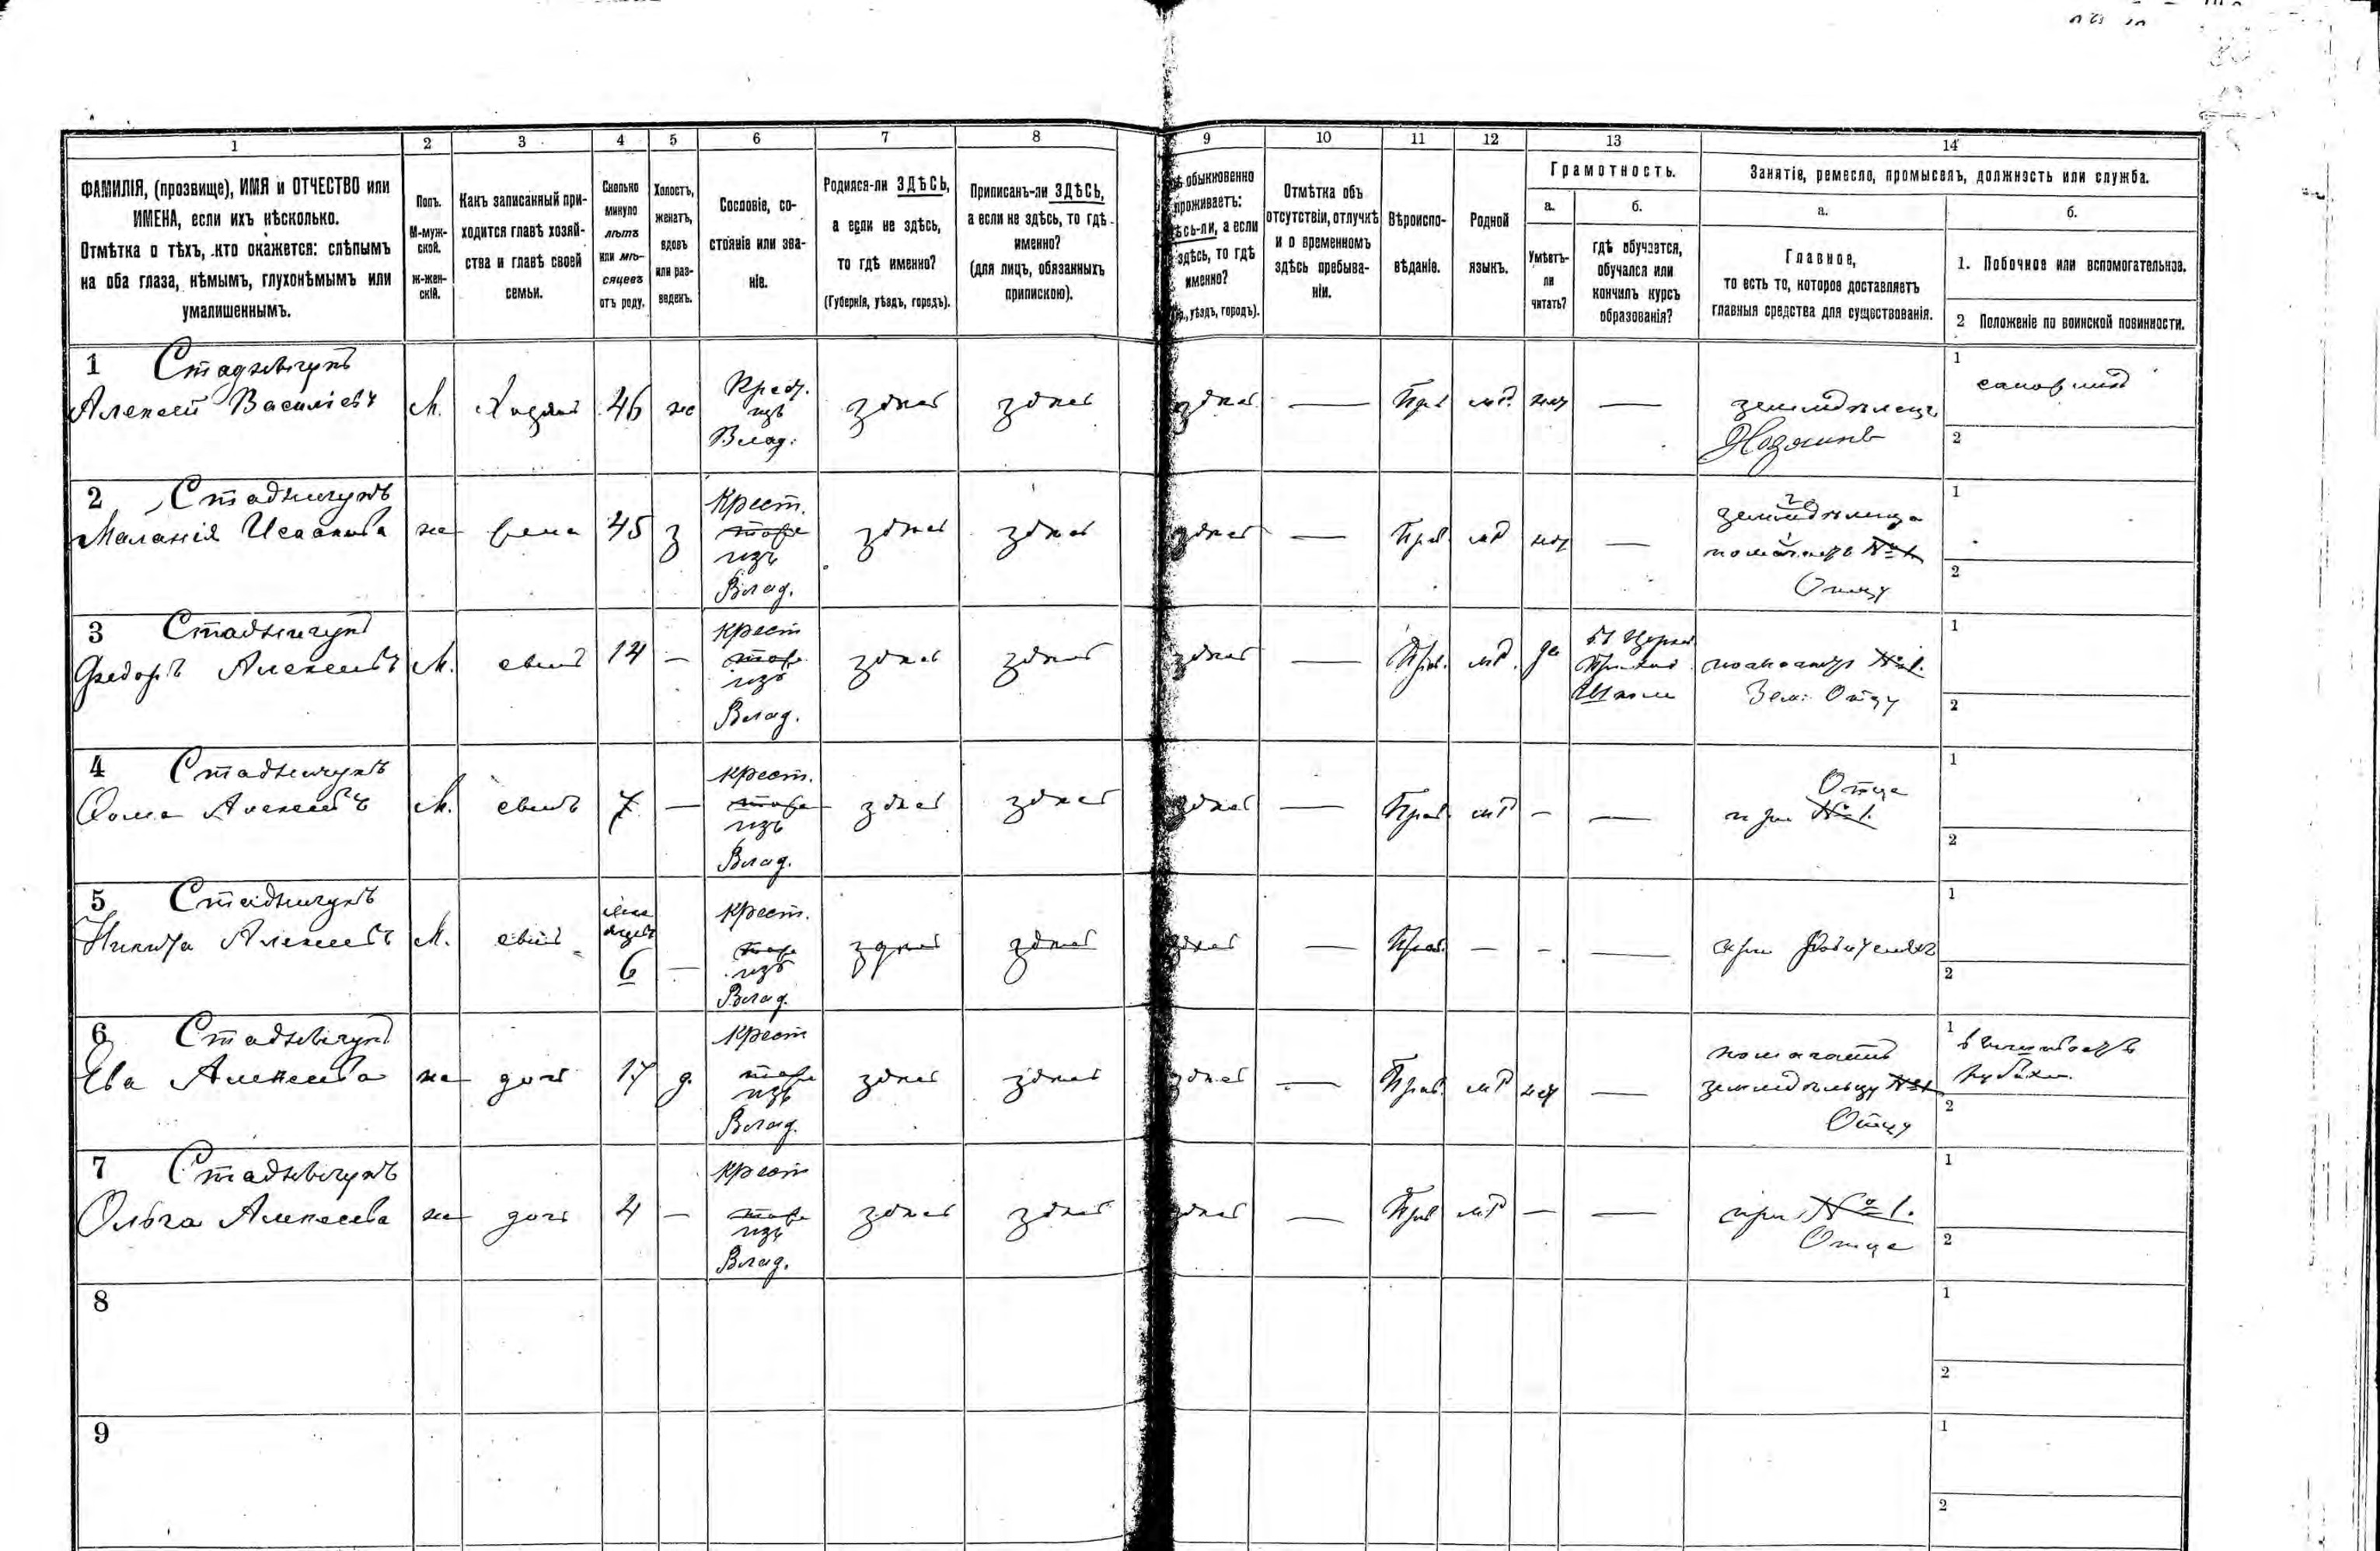 1 2 3 4 5 6 7 8 9 10 11 12 13 14
ФАМИЛІЯ, (прозвище), ИМЯ и ОТЧЕСТВО или
ИМЕНА, если ихъ нѣсколько.
Отмѣтка о тѣхъ, кто окажется: слѣпымъ
на оба глаза, нѣмымъ, глухонѣмымъ или
умалишеннымъ.
Полъ.
М-муж-
ской.
ж-жен-
скій.
Какъ записанный при-
ходится главѣ хозяй-
ства и главѣ своей
семьи.
Сколько
минуло
лѣтъ
или мѣ-
сяцевъ
отъ роду.
Холостъ,
женатъ,
вдовъ
или раз-
веденъ.
Сословіе, со-
стояніе или зва-
ніе.
Родился-ли ЗДѢСЬ,
а если не здѣсь,
то гдѣ именно?
(Губернія, уѣздъ, городъ).
Приписанъ-ли ЗДѢСЬ,
а если не здѣсь, то гдѣ
именно?
(для лицъ, обязанныхъ
припискою).
обыкновенно
проживаетъ:
а если
здѣсь, то гдѣ
именно?
уѣздъ, городъ).
Отмѣтка объ
отсутствіи, отлучкѣ
и о временномъ
здѣсь пребыва-
ніи.
Вѣроиспо-
вѣданіе.
Родной
языкъ.
Грамотность.
а.
Умѣетъ-
ли
читать?
б.
гдѣ обучается,
обучался или
кончилъ курсъ
образованія?
Занятіе, ремесло, промыселъ, должность или служба.
а.
Главное,
то есть то, которое доставляетъ
главныя средства для существованія.
б.
1. Побочное или вспомогательное.
2 Положеніе по воинской повинности.
1
Алексей Василіевъ М. Хозяинъ 46 же Крест. изъ Влад. здѣсь здѣсь здѣсь — Пра мР. нет — земледѣлецъ
Хозяинъ
1
2
2 Стадничукъ
Маланія Исаакова же жена 45 з Крест. изъ Влад. здѣсь здѣсь здѣсь — Прав. мР нет —
Отцу
1
2
3 Стадничукъ
Федоръ Алексеевъ М. сынъ 14 — Крест изъ Влад. здѣсь здѣсь здѣсь — Прав. мР. да помогаетъ №1.
Зем: Отцу
1
2
4 Стадничукъ
Фома Алексеевъ М. сынъ 7 — Крест. изъ Влад. здѣсь здѣсь здѣсь — Прав. мР — — Отце
при №1.
1
2
5 Стадничукъ
Никита Алексеевъ М. сынъ 6 — Крест. изъ Влад. здѣсь здѣсь здѣсь — Прав. — - — при Родителяхъ
1
2
6 Стадничукъ
Ева Алексеева же дочь 17 д. Крест изъ Влад. здѣсь здѣсь здѣсь — Прав. мР нет — помогаетъ
земледѣльцу №1
Отцу
1
2
7 Стадничукъ
Ольга Алексеева же дочь 4 — Крест изъ Влад. здѣсь здѣсь здѣсь — Прав мР — — при №1.
Отце
1
2
8
1
2
9
1
2